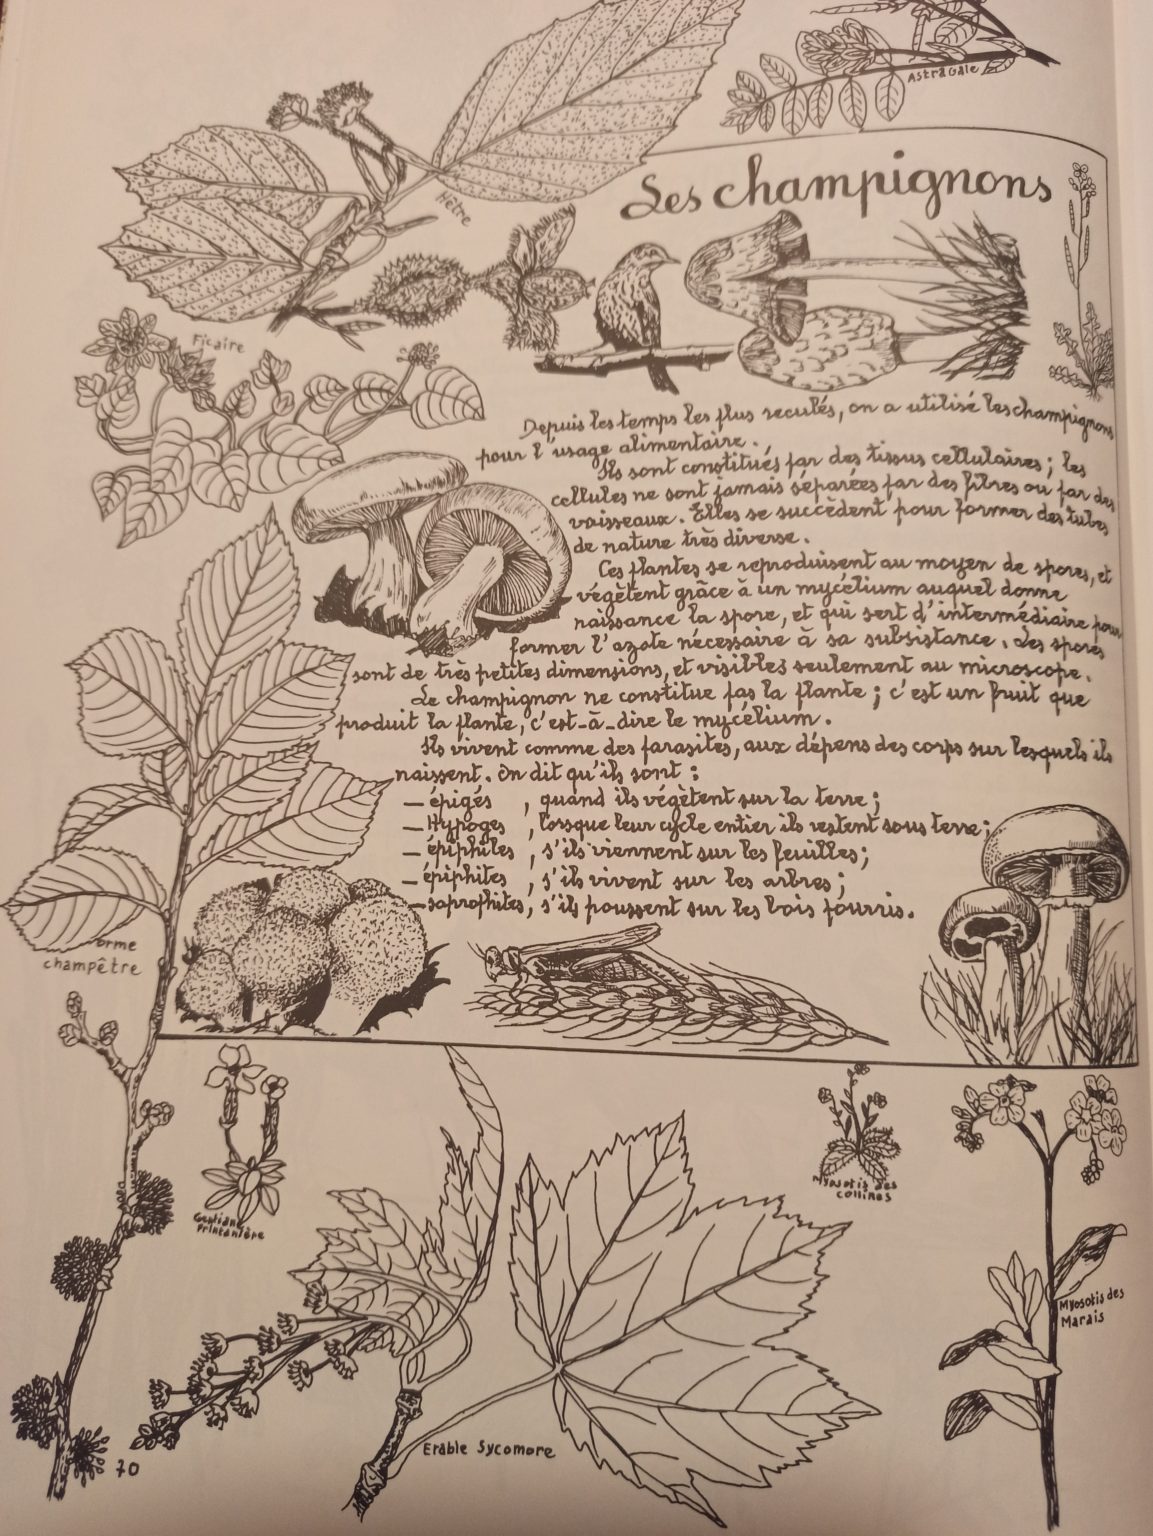 Astragale
Les champignons
Hêtre
Ficaire
Depuis les temps les plus reculés, on a utilisé les champignons
pour l'usage alimentaire.
Ils sont constitués par des tissus cellulaires ; les
cellules ne sont jamais séparées par des fibres ou par des
vaisseaux. Elles se succèdent pour former des tubes
de nature très diverse.
Ces plantes se reproduisent au moyen de spores, et
végètent grâce à un mycélium auquel donne
naissance la spore, et qui sert d'intermédiaire pour
former l'azote nécessaire à sa subsistance. Les spores
sont de très petites dimensions, et visibles seulement au microscope.
Le champignon ne constitue pas la plante ; c'est un fruit que
produit la plante, c'est-à-dire le mycélium.
Ils vivent comme des parasites, aux dépens des corps sur lesquels ils
naissent. On dit qu'ils sont :
_ épigés , quand ils végètent sur la terre ;
_ Hypoges , lorsque leur cycle entier ils restent sous terre ;
_ épiphiles , s'ils viennent sur les feuilles ;
_ épiphites , s'ils vivent sur les arbres ;
_ saprophites, s'ils poussent sur les bois pourris.
orme
champêtre
Gentiane
Printanière
Myosotis des
collines
Myosotis des
Marais
Erable Sycomore
70